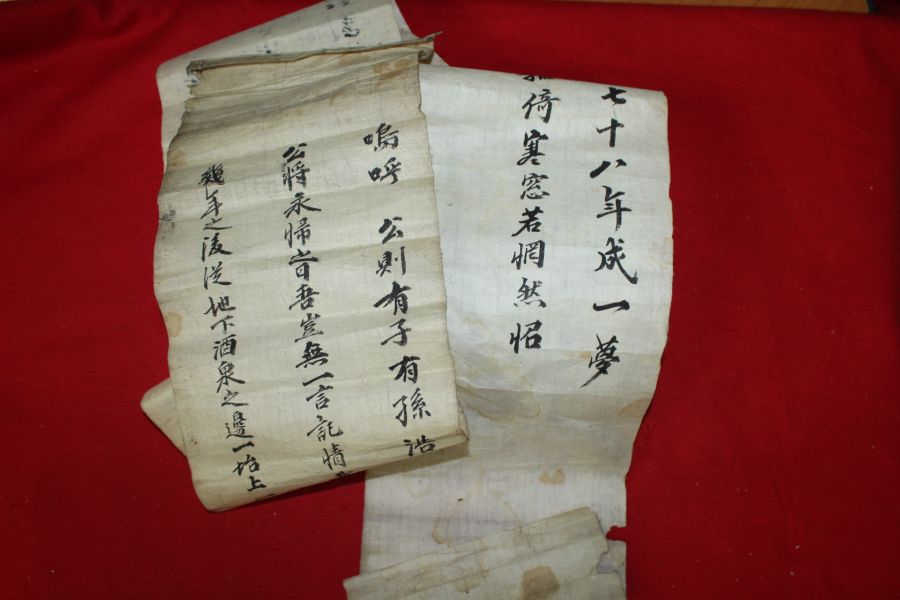 七十八年成一夢
倚寒窓若惘然怊
嗚呼 公則有子有孫浩
公將永帰旹吾豈無一言記情
幾年之後從地下酒泉之邊一坮上